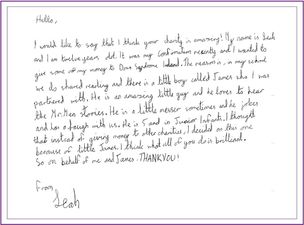 Hello,
I would like to say that I think your charity is amazing! My name is Leah
and I am twelve years old. It was my Confirmation recently and I wanted to
give some of my money to Down Syndrome Ireland. The reason is, in my school
we do shared reading and there is a little boy called James who I was
partnered with. He is an amazing little guy and he loves to hear
the Mr Men stories. He is a little messer sometimes and he jokes
and has a laugh with us. He is 5 and in Junior Infants. I thought
that instead of giving money to other charities, I decided on this one
because of little James. I think what all of you do is brilliant.
So on behalf of me and James: THANK YOU!
From,
Leah